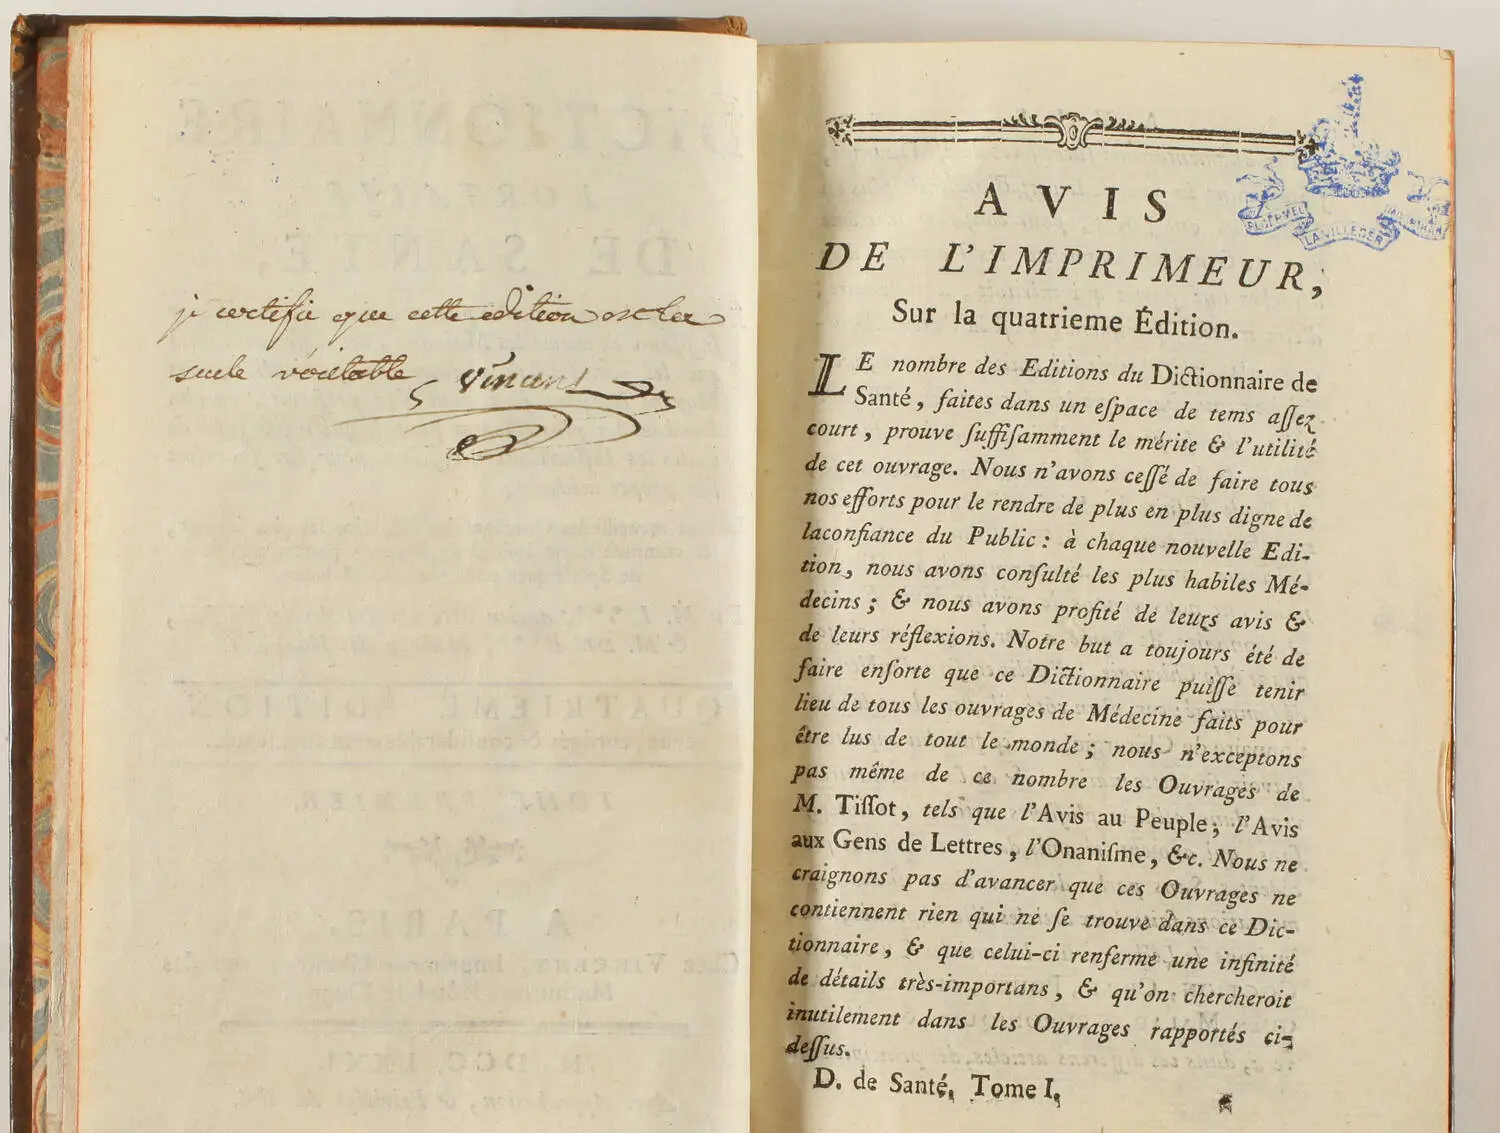 je certifie que cette edition est la
seule véritable Vincent
PLOERMEL
LA VILLEDER
AVIS
DE L'IMPRIMEUR,
Sur la quatrieme Édition.
LE nombre des Editions du Dictionnaire de
Santé, faites dans un eſpace de tems aſſez
court, prouve ſuffiſamment le mérite & l'utilité
de cet ouvrage. Nous n'avons ceſſé de faire tous
nos efforts pour le rendre de plus en plus digne de
laconfiance du Public : à chaque nouvelle Edi-
tion, nous avons conſulté les plus habiles Mé-
decins ; & nous avons profité de leurs avis &
de leurs réflexions. Notre but a toujours été de
faire enſorte que ce Dictionnaire puiſſe tenir
lieu de tous les ouvrages de Médecine faits pour
être lus de tout le monde ; nous n'exceptons
pas même de ce nombre les Ouvrages de
M. Tiſſot, tels que l'Avis au Peuple, l'Avis
aux Gens de Lettres, l'Onaniſme, &c. Nous ne
craignons pas d'avancer que ces Ouvrages ne
contiennent rien qui ne ſe trouve dans ce Dic-
tionnaire, & que celui-ci renferme une infinité
de détails très-importans, & qu'on chercheroit
inutilement dans les Ouvrages rapportés ci-
deſſus.
D. de Santé, Tome I,